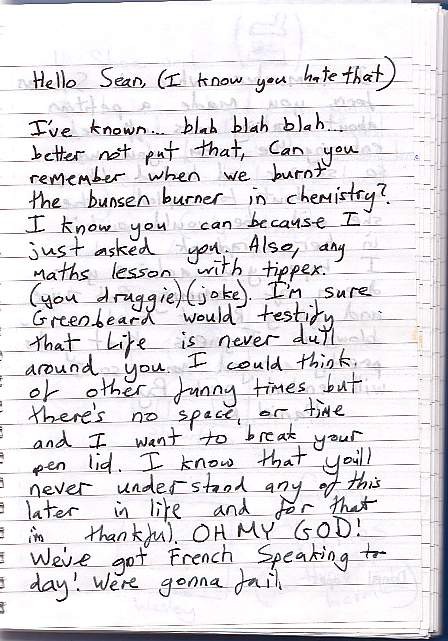 Hello Sean, (I know you hate that)
I've known... blah blah blah...
better not put that, Can you
remember when we burnt
the bunsen burner in chemistry?
I know you can because I
just asked you. Also, any
maths lesson with tippex.
(you druggie)(joke). I'm sure
Greenbeard would testify
that Life is never dull
around you. I could think
of other funny times but
there's no space, or time
and I want to break your
pen lid. I know that you'll
never understand any of this
later in life and for that
i'm thankful. OH MY GOD!
We've got French Speaking to-
day! We're gonna fail